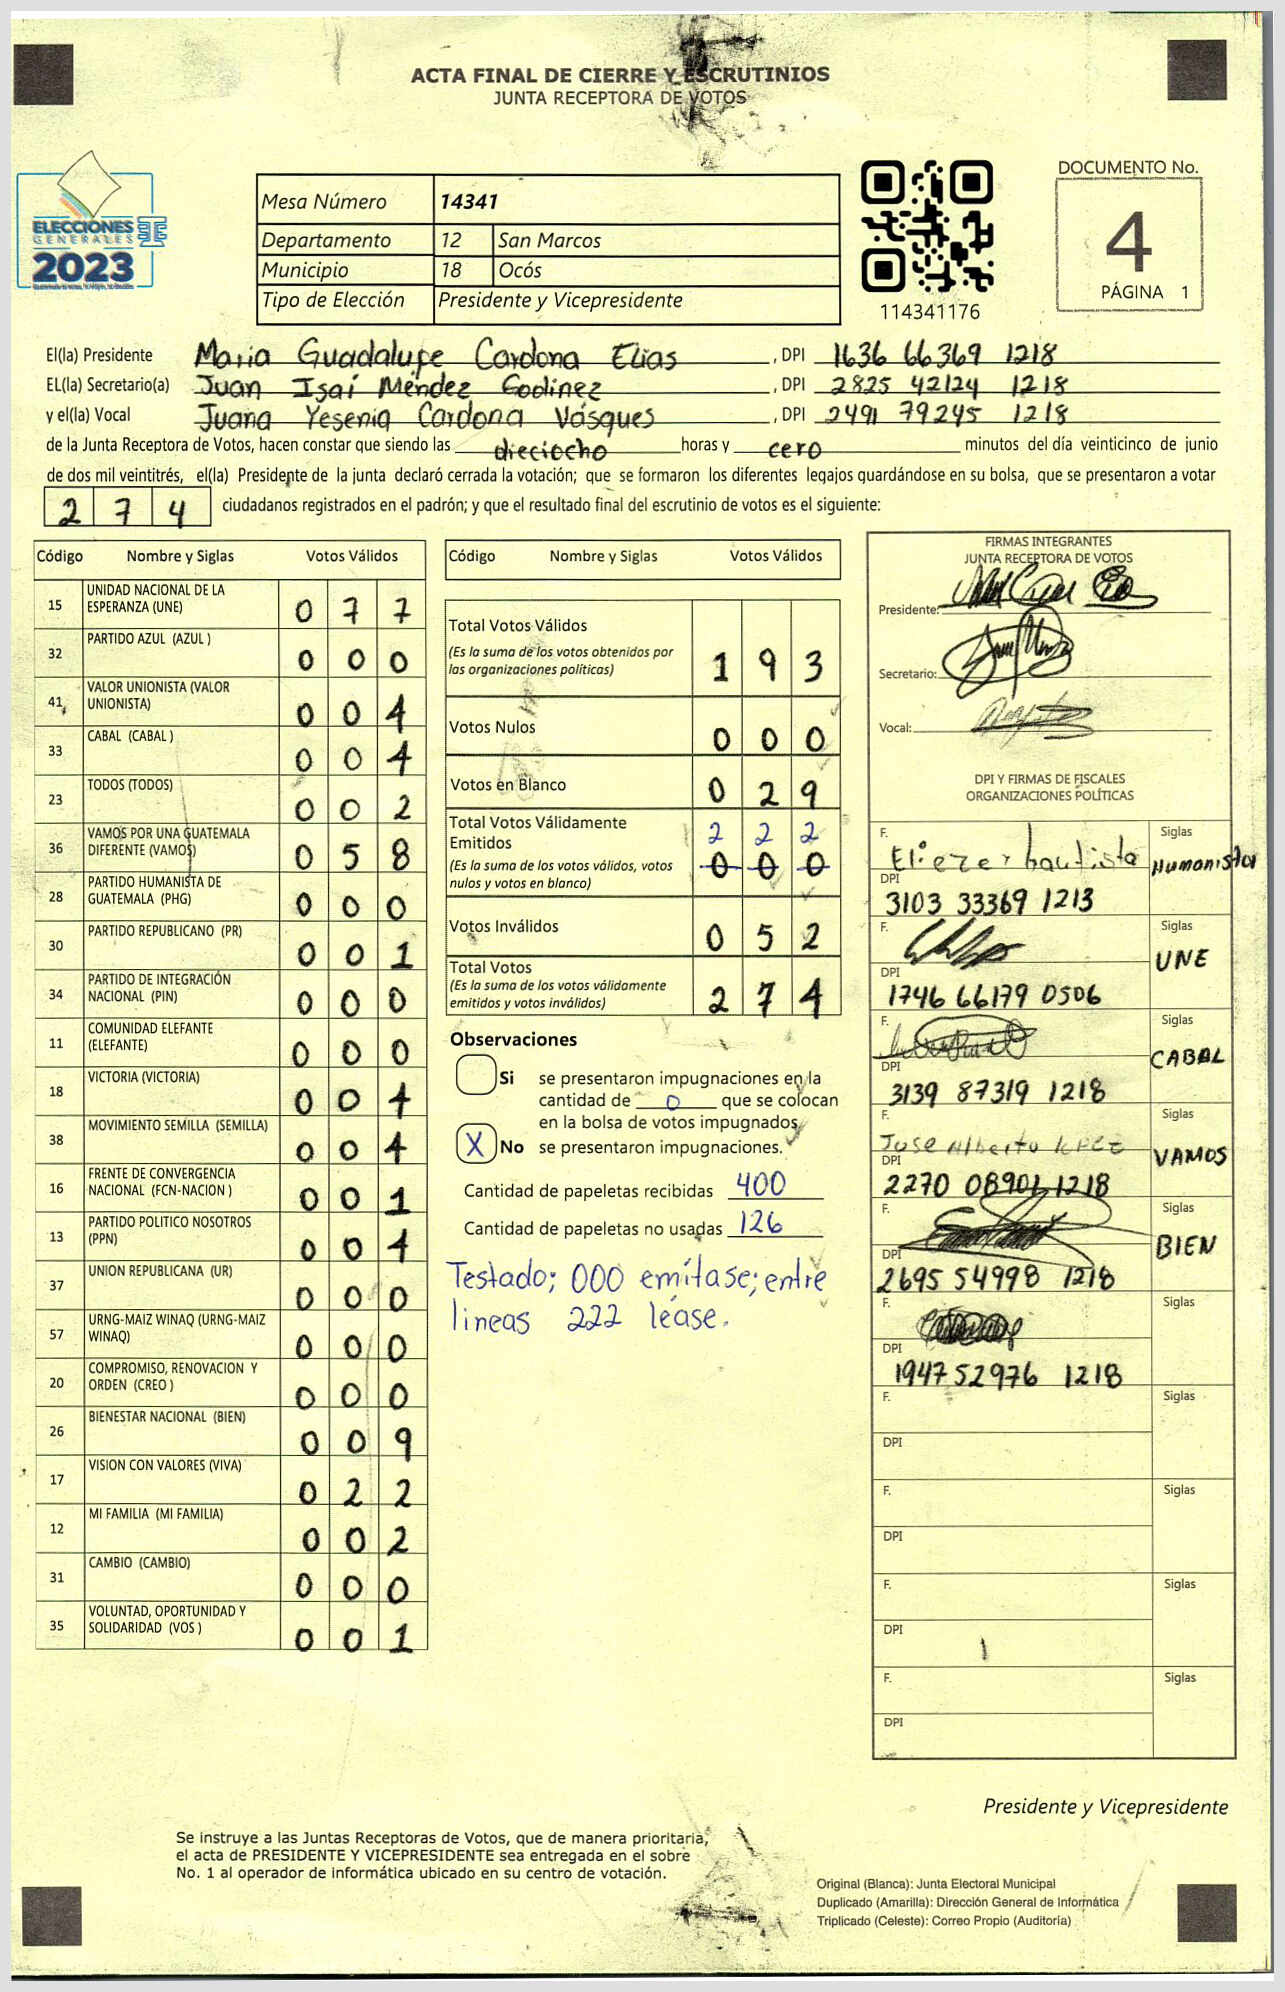 ACTA FINAL DE CIERRE Y ESCRUTINIOS
JUNTA RECEPTORA DE VOTOS
ELECCIONES
GENERALES
2023
Mesa Número 14341
Departamento 12 San Marcos
Municipio 18 Ocós
Tipo de Elección Presidente y Vicepresidente
114341176
DOCUMENTO No.
4
PÁGINA 1
El(la) Presidente Maria Guadalupe Cardona Elias, DPI 1636 66369 1218
EL(la) Secretario(a) Juan Isaí Méndez Godinez, DPI 2825 42124 1218
y el(la) Vocal Juana Yesenia Cardona Vásques, DPI 2491 79245 1218
de la Junta Receptora de Votos, hacen constar que siendo las dieciocho horas y cero minutos del día veinticinco de junio
de dos mil veintitrés, el(la) Presidente de la junta declaró cerrada la votación; que se formaron los diferentes legajos guardándose en su bolsa, que se presentaron a votar
2 7 4 ciudadanos registrados en el padrón; y que el resultado final del escrutinio de votos es el siguiente:
Código Nombre y Siglas Votos Válidos
15 UNIDAD NACIONAL DE LA ESPERANZA (UNE) 0 7 7
32 PARTIDO AZUL (AZUL ) 0 0 0
41 VALOR UNIONISTA (VALOR UNIONISTA) 0 0 4
33 CABAL (CABAL ) 0 0 4
23 TODOS (TODOS) 0 0 2
36 VAMOS POR UNA GUATEMALA DIFERENTE (VAMOS) 0 5 8
28 PARTIDO HUMANISTA DE GUATEMALA (PHG) 0 0 0
30 PARTIDO REPUBLICANO (PR) 0 0 1
34 PARTIDO DE INTEGRACIÓN NACIONAL (PIN) 0 0 0
11 COMUNIDAD ELEFANTE (ELEFANTE) 0 0 0
18 VICTORIA (VICTORIA) 0 0 4
38 MOVIMIENTO SEMILLA (SEMILLA) 0 0 4
16 FRENTE DE CONVERGENCIA NACIONAL (FCN-NACION ) 0 0 1
13 PARTIDO POLITICO NOSOTROS (PPN) 0 0 4
37 UNION REPUBLICANA (UR) 0 0 0
57 URNG-MAIZ WINAQ (URNG-MAIZ WINAQ) 0 0 0
20 COMPROMISO, RENOVACION Y ORDEN (CREO ) 0 0 0
26 BIENESTAR NACIONAL (BIEN) 0 0 9
17 VISION CON VALORES (VIVA) 0 2 2
12 MI FAMILIA (MI FAMILIA) 0 0 2
31 CAMBIO (CAMBIO) 0 0 0
35 VOLUNTAD, OPORTUNIDAD Y SOLIDARIDAD (VOS ) 0 0 1
Código Nombre y Siglas Votos Válidos
Total Votos Válidos
(Es la suma de los votos obtenidos por
las organizaciones políticas) 1 9 3
Votos Nulos 0 0 0
Votos en Blanco 0 2 9
Total Votos Válidamente Emitidos 2 2 2
(Es la suma de los votos válidos, votos
nulos y votos en blanco) 0 0 0
Votos Inválidos 0 5 2
Total Votos
(Es la suma de los votos válidamente
emitidos y votos inválidos) 2 7 4
Observaciones
Si se presentaron impugnaciones en la
cantidad de 0 que se colocan
en la bolsa de votos impugnados
X No se presentaron impugnaciones.
Cantidad de papeletas recibidas 400
Cantidad de papeletas no usadas 126
Testado; 000 emítase; entre
lineas 222 léase.
FIRMAS INTEGRANTES
JUNTA RECEPTORA DE VOTOS
Presidente:
Secretario:
Vocal:
DPI Y FIRMAS DE FISCALES
ORGANIZACIONES POLÍTICAS
F. Eliezer bautista Siglas Humanista
DPI 3103 33369 1213
F. Siglas UNE
DPI 1746 66179 0506
F. Siglas CABAL
DPI 3139 87319 1218
F. Jose Alberto Siglas VAMOS
DPI 2270 08901 1218
F. Siglas BIEN
DPI 2695 54998 1218
F. Siglas
DPI 1947 52976 1218
F. Siglas
DPI
F. Siglas
DPI
F. Siglas
DPI
F. Siglas
DPI
Presidente y Vicepresidente
Se instruye a las Juntas Receptoras de Votos, que de manera prioritaria,
el acta de PRESIDENTE Y VICEPRESIDENTE sea entregada en el sobre
No. 1 al operador de informática ubicado en su centro de votación.
Original (Blanca): Junta Electoral Municipal
Duplicado (Amarilla): Dirección General de Informática
Triplicado (Celeste): Correo Propio (Auditoría)